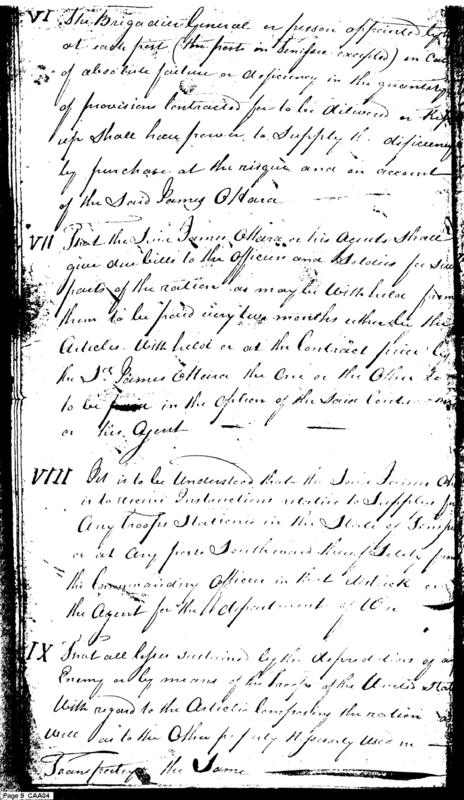 VI The Brigadier General or person appointed by
at each post (the posts in Tenissee excepted) in case
of absolute failure or deficiency in the quantity
of provision Contracted for to be delivered or
up Shall have power to Supply the deficiency
by purchase at the risque and on account
of the Said James OHara
VII That the Said James OHara or his Agents Shall
give due bills to the Officers and Soldiers for Such
parts of the ration as may be Withheld from
them to be paid every two months either in the
Articles Withheld or at the Contract price by
the Sd. James OHara the One or the Other
to be in the Option of the Said
or his Agent
VIII It is to be Understood that the Said James
is to receive Instructions relative to Supplies for
Any Troops Stationed in the State of
or at Any posts Southward thereof Solely from
the Commanding Officer in that district or
the Agent for the department of War
IX That all losses Sustained by the depredations of an
Enemy or by means of the troops of the United States
With regard to the Articles Composing the ration as
Well as to the Other property necessarily Used in
Transporting the Same
Page 9 CAA04